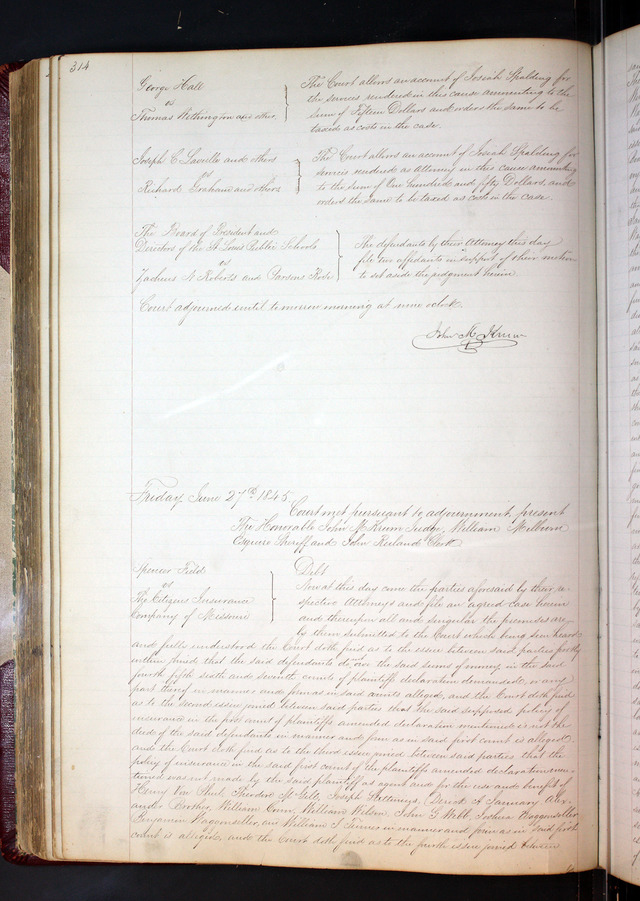 314
George Hall
vs
Thomas Withington and other
The Court allows an account of Josiah Spalding for
the services rendered in this cause amounting to the
sum of Fifteen Dollars and orders the same to be
taxed as costs in the case.
Joseph C Laveille and others
vs
Richard Graham and others
The Court allows an account of Josiah Spalding for
services rendered as Attorney in this cause amounting
to the sum of One hundred and fifty Dollars, and
orders the same to be taxed as costs in the case.
The Board of President and
Directors of the St Louis Public Schools
vs
Zacheus N Roberts and Parsons Rose
The defendants by their Attorney this day
file two affidavits in support of their motion
to set aside the judgment herein
Court adjourned until tomorrow morning at nine oclock.
John M. Krum
Friday June 27th 1845.
Court met pursuant to adjournment, present
The Honorable John M Krum Judge, William Milburn
Esquire Sheriff and John Ruland Clerk
Spencer Field
vs
The Citizens Insurance
Company of Missouri
Debt
Now at this day come the parties aforesaid by their re-
spective Attorneys and file an agreed case herein
and thereupon all and singular the premises are
by them submitted to the Court which being seen heard
and fully understood the Court doth find as to the issue between said parties firstly
within joined, that the said defendants do owe the said sums of money in the said
fourth fifth sixth and seventh counts of plaintiffs declaration demanded, or any
part thereof in manner and form as in said counts alleged, and the Court doth find
as to the second issue joined between said parties that the said supposed policy of
insurance in the first count of plaintiffs amended declaration mentioned is not the
deed of the said defendants in manner and form as in said first count is alleged
and the Court doth find as to the third issue joined between said parties that the
policy of insurance in the said first count of the plaintiffs amended declaration men-
tioned was not made by the said plaintiff as agent and for the use and benefit of
Henry Von Phul, Theodore McGill, Joseph Settinius, Derick A January, Alex-
ander Brother, William Cowen, William Wilson, John G Webb, Joshua Waggonseller
Benjamin Wagonseller, and William S Turner in manner and form as in said first
count is alleged, and the Court doth find as to the fourth issue joined between